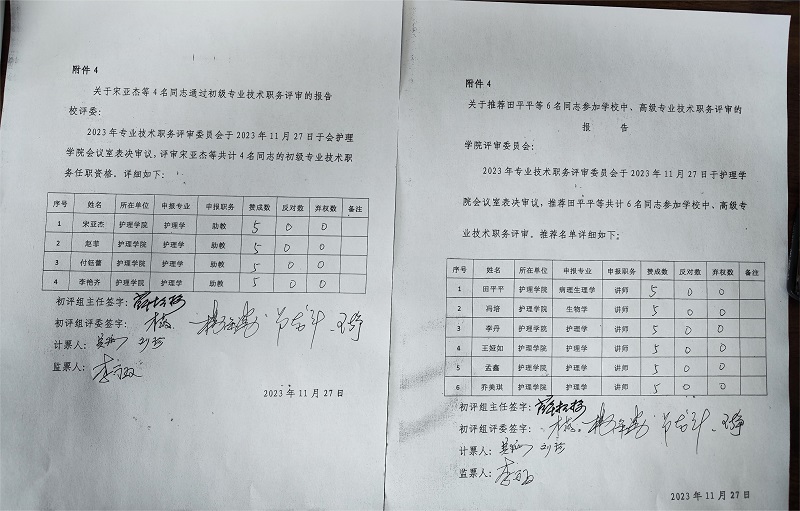 附件 4
关于宋亚杰等 4 名同志通过初级专业技术职务评审的报告
校评委:
2023 年专业技术职务评审委员会于 2023 年 11 月 27 日于会护理
学院会议室表决审议, 评审宋亚杰等共计 4 名同志的初级专业技术职
务任职资格。详细如下:
序号 姓名 所在单位 申报专业 申报职务 赞成数 反对数 弃权数 备注
1 宋亚杰 护理学院 护理学 助教 5 0 0
2 赵菲 护理学院 护理学 助教 5 0 0
3 付钰蕾 护理学院 护理学 助教 5 0 0
4 李艳齐 护理学院 护理学 助教 5 0 0
初评组主任签字:
初评组评委签字:
计票人:
监票人:
2023 年 11 月 27 日
附件 4
关于推荐田平平等 6 名同志参加学校中、高级专业技术职务评审的
报 告
学院评审委员会:
2023 年专业技术职务评审委员会于 2023 年 11 月 27 日于护理学
院会议室表决审议, 推荐田平平等共计 6 名同志参加学校中、高级专
业技术职务评审。推荐名单详细如下:
序号 姓名 所在单位 申报专业 申报职务 赞成数 反对数 弃权数 备注
1 田平平 护理学院 病理生理学 讲师 5 0 0
2 冯培 护理学院 生物学 讲师 5 0 0
3 李丹 护理学院 护理学 讲师 5 0 0
4 王娅如 护理学院 护理学 讲师 5 0 0
5 孟鑫 护理学院 护理学 讲师 5 0 0
6 乔美琪 护理学院 护理学 讲师 5 0 0
初评组主任签字:
初评组评委签字:
计票人:
监票人:
2023 年 11 月 27 日